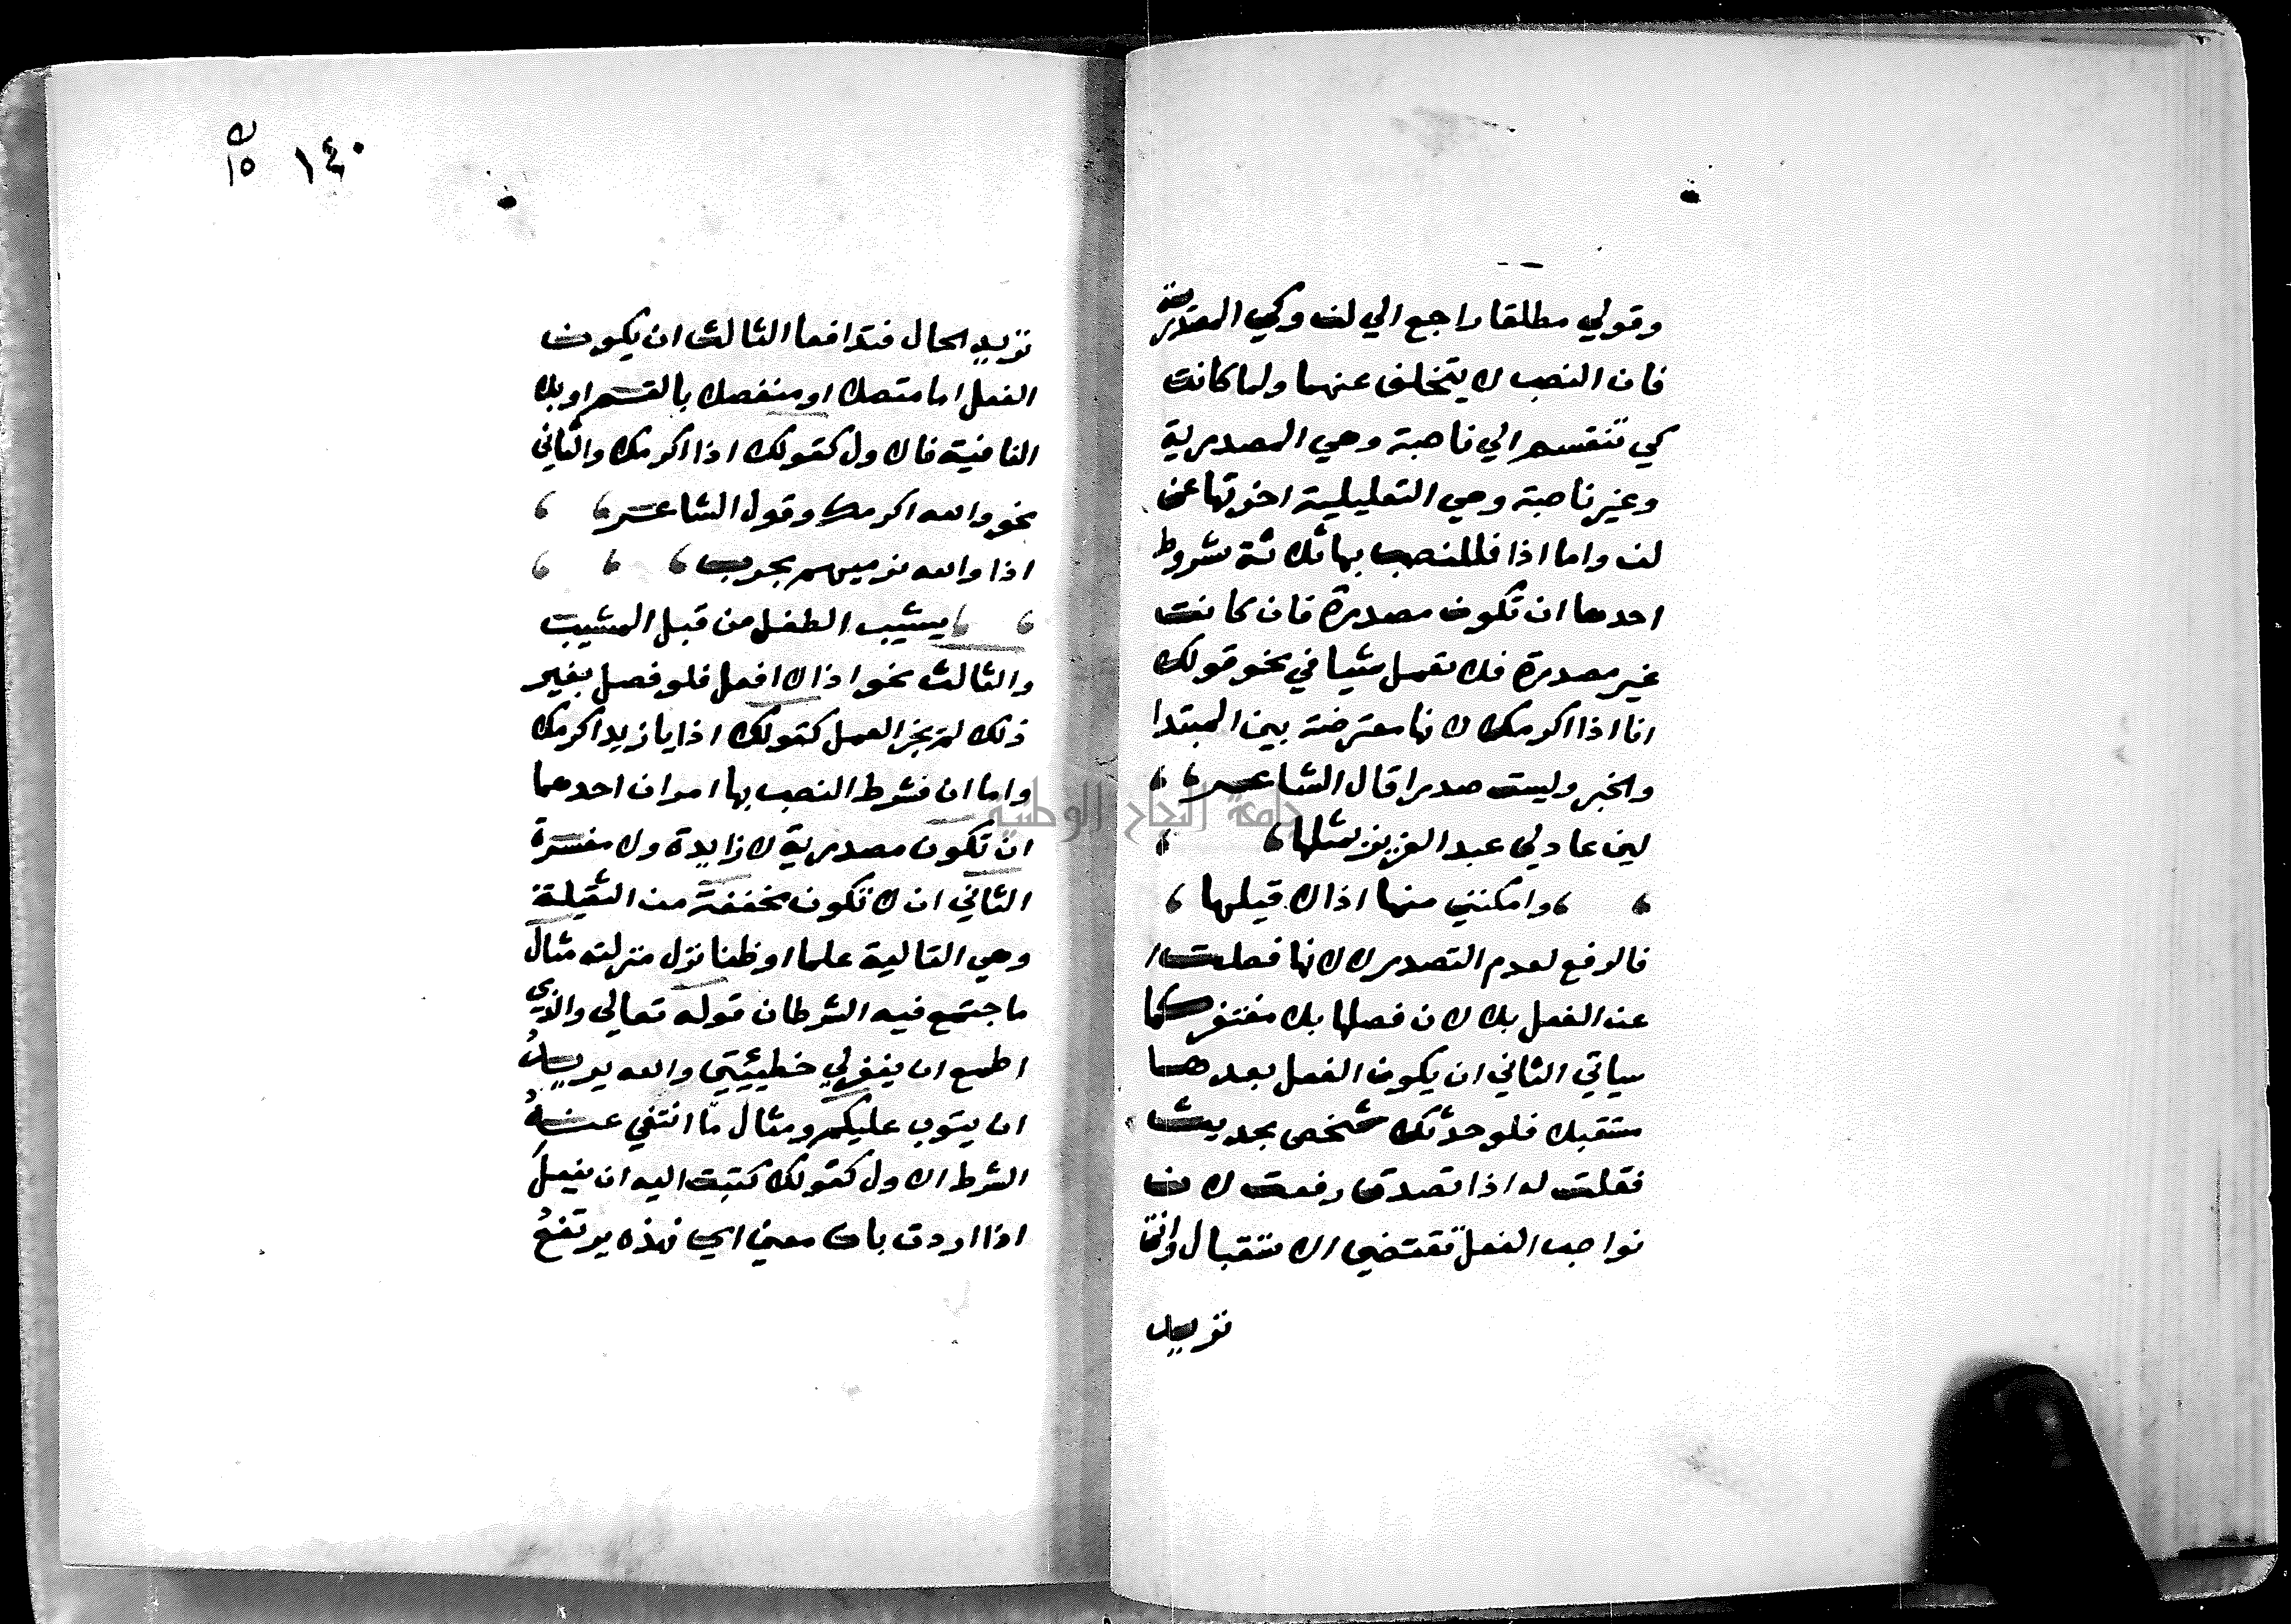 وقولي مطلقا راجع الي لن وكي المصدرية
فان النصب لا يتخلف عنهما ولما كانت
كي تنقسم الي ناصبة وهي المصدرية
وغير ناصبة وهي التعليلية اخرتها عن
لن واما اذا فللنصب بها ثلاثة شروط
احدها ان تكون مصدرة فان كانت
غير مصدرة فلا تعمل شيا في نحو قولك
انا اذا اكرمك لانها معترضة بين المبتدا
والخبر وليست صدرا قال الشاعر
لين عاد لي عبد العزيز بمثلها
وامكنني منها اذا لا قيلها
فالرفع لعدم التصدر لا لانها فصلت
عن الفعل بلا لان فصلها بلا مغتفر كما
سياتي الثاني ان يكون الفعل بعدها
مستقبلا فلو حدثك شخص بحديث
فقلت له اذا تصدق رفعت لان
نواصب الفعل تقتضي الاستقبال وانت
تريد
١٤٠
١٥
تريد الحال فتدافعا الثالث ان يكون
الفعل اما متصلا او منفصلا بالقسم او بلا
النافية فالاول كقولك اذا اكرمك والثاني
نحو والله اكرمك وقول الشاعر
اذا والله نرميهم بحرب
يشيب الطفل من قبل المشيب
والثالث نحو اذا لا افعل فلو فصل بغير
ذلك لم يجز العمل كقولك اذا يا زيد اكرمك
واما ان فشرط النصب بها امران احدهما
ان تكون مصدرية لا زايدة ولا مفسرة
الثاني ان لا تكون مخففة من الثقيلة
وهي التالية علما او ظنا نزل منزلته مثال
ما جتمع فيه الشرطان قوله تعالي والذي
اطمع ان يغفر لي خطيئتي والله يريد
ان يتوب عليكم ومثال ما انتفي عنه
الشرط الاول كقولك كتبت اليه ان يفعل
اذا اردت بان معني اي فهذه يرتفع
جامعة النجاح الوطنية